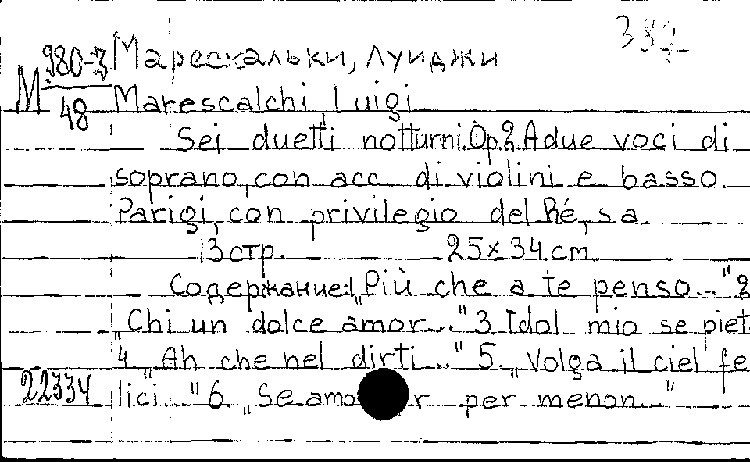 М 980-3/48
Марескальки, Луиджи
Marescalchi, Luigi
Sei duetti notturni. Op.2. A due voci di
soprano, con acc. di violini e basso.
Parigi, con privilegio del Ré, s.a.
13 стр. 25x34 cm
Содержание: 1. „Più che a te penso..." 2
„Chi un dolce amor..." 3. Idol mio se piet
4. „Ah che nel dirti..." 5. „Volga il ciel fe
lici..." 6. „Se amo r per me non..."
22334